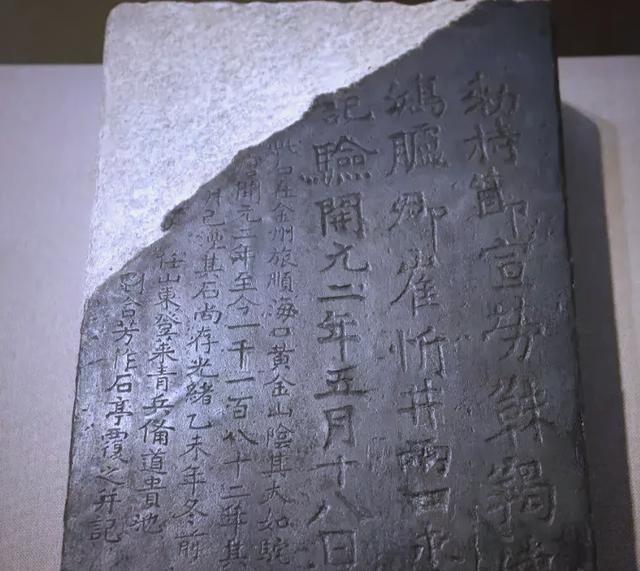 勅持節宣勞靺羯使
鴻臚卿崔忻井兩口永
記驗開元二年五月十八日
此石在金州旅順海口黃金山陰其大如駝
開元二年至今一千一百八十二年其
井已湮其石尚存光緒乙未年冬前
任山東登萊青兵備道貴池
劉含芳作石亭覆之并記